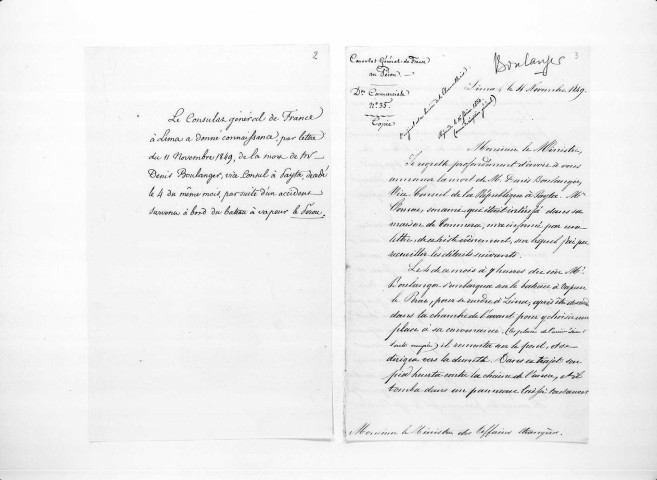 2
Le Consulat général de France
à Lima a donné connaissance, par lettre
du 11 Novembre 1849, de la mort de Mr
Denis Boulanger, vice Consul à Payta, décédé
le 4 du même mois, par suite d'un accident
survenu à bord du bateau à vapeur le Pérou.
3
Boulanger
Consulat Général de France
au Pérou
Don Commerciale
No 35.
Copie
Lima, le 11 Novembre 1849.
Monsieur le Ministre,
Je regrette profondément d'avoir à vous
annoncer la mort de M. Denis Boulanger,
Vice Consul de la République à Payta. Mr
que était intéressé dans sa
maison de Commerce, m'a informé par une
lettre, de ce triste événement, sur lequel j'ai pu
recueillir les détails suivants.
Le 4 de ce mois à 7 heures du soir Mr
Boulanger s'embarqua sur le bateau à vapeur
le Pérou, pour se rendre à Lima; après être descendu
dans la chambre de l'avant pour y choisir une
place à sa convenance (les places de l'arrière étant
toutes occupées) il remonta sur le pont, et se
dirigea vers la dunette. Dans ce trajet son
pied heurta contre la chaîne de l'ancre, et il
tomba dans un panneau laissé
Monsieur le Ministre des Affaires étrangères.